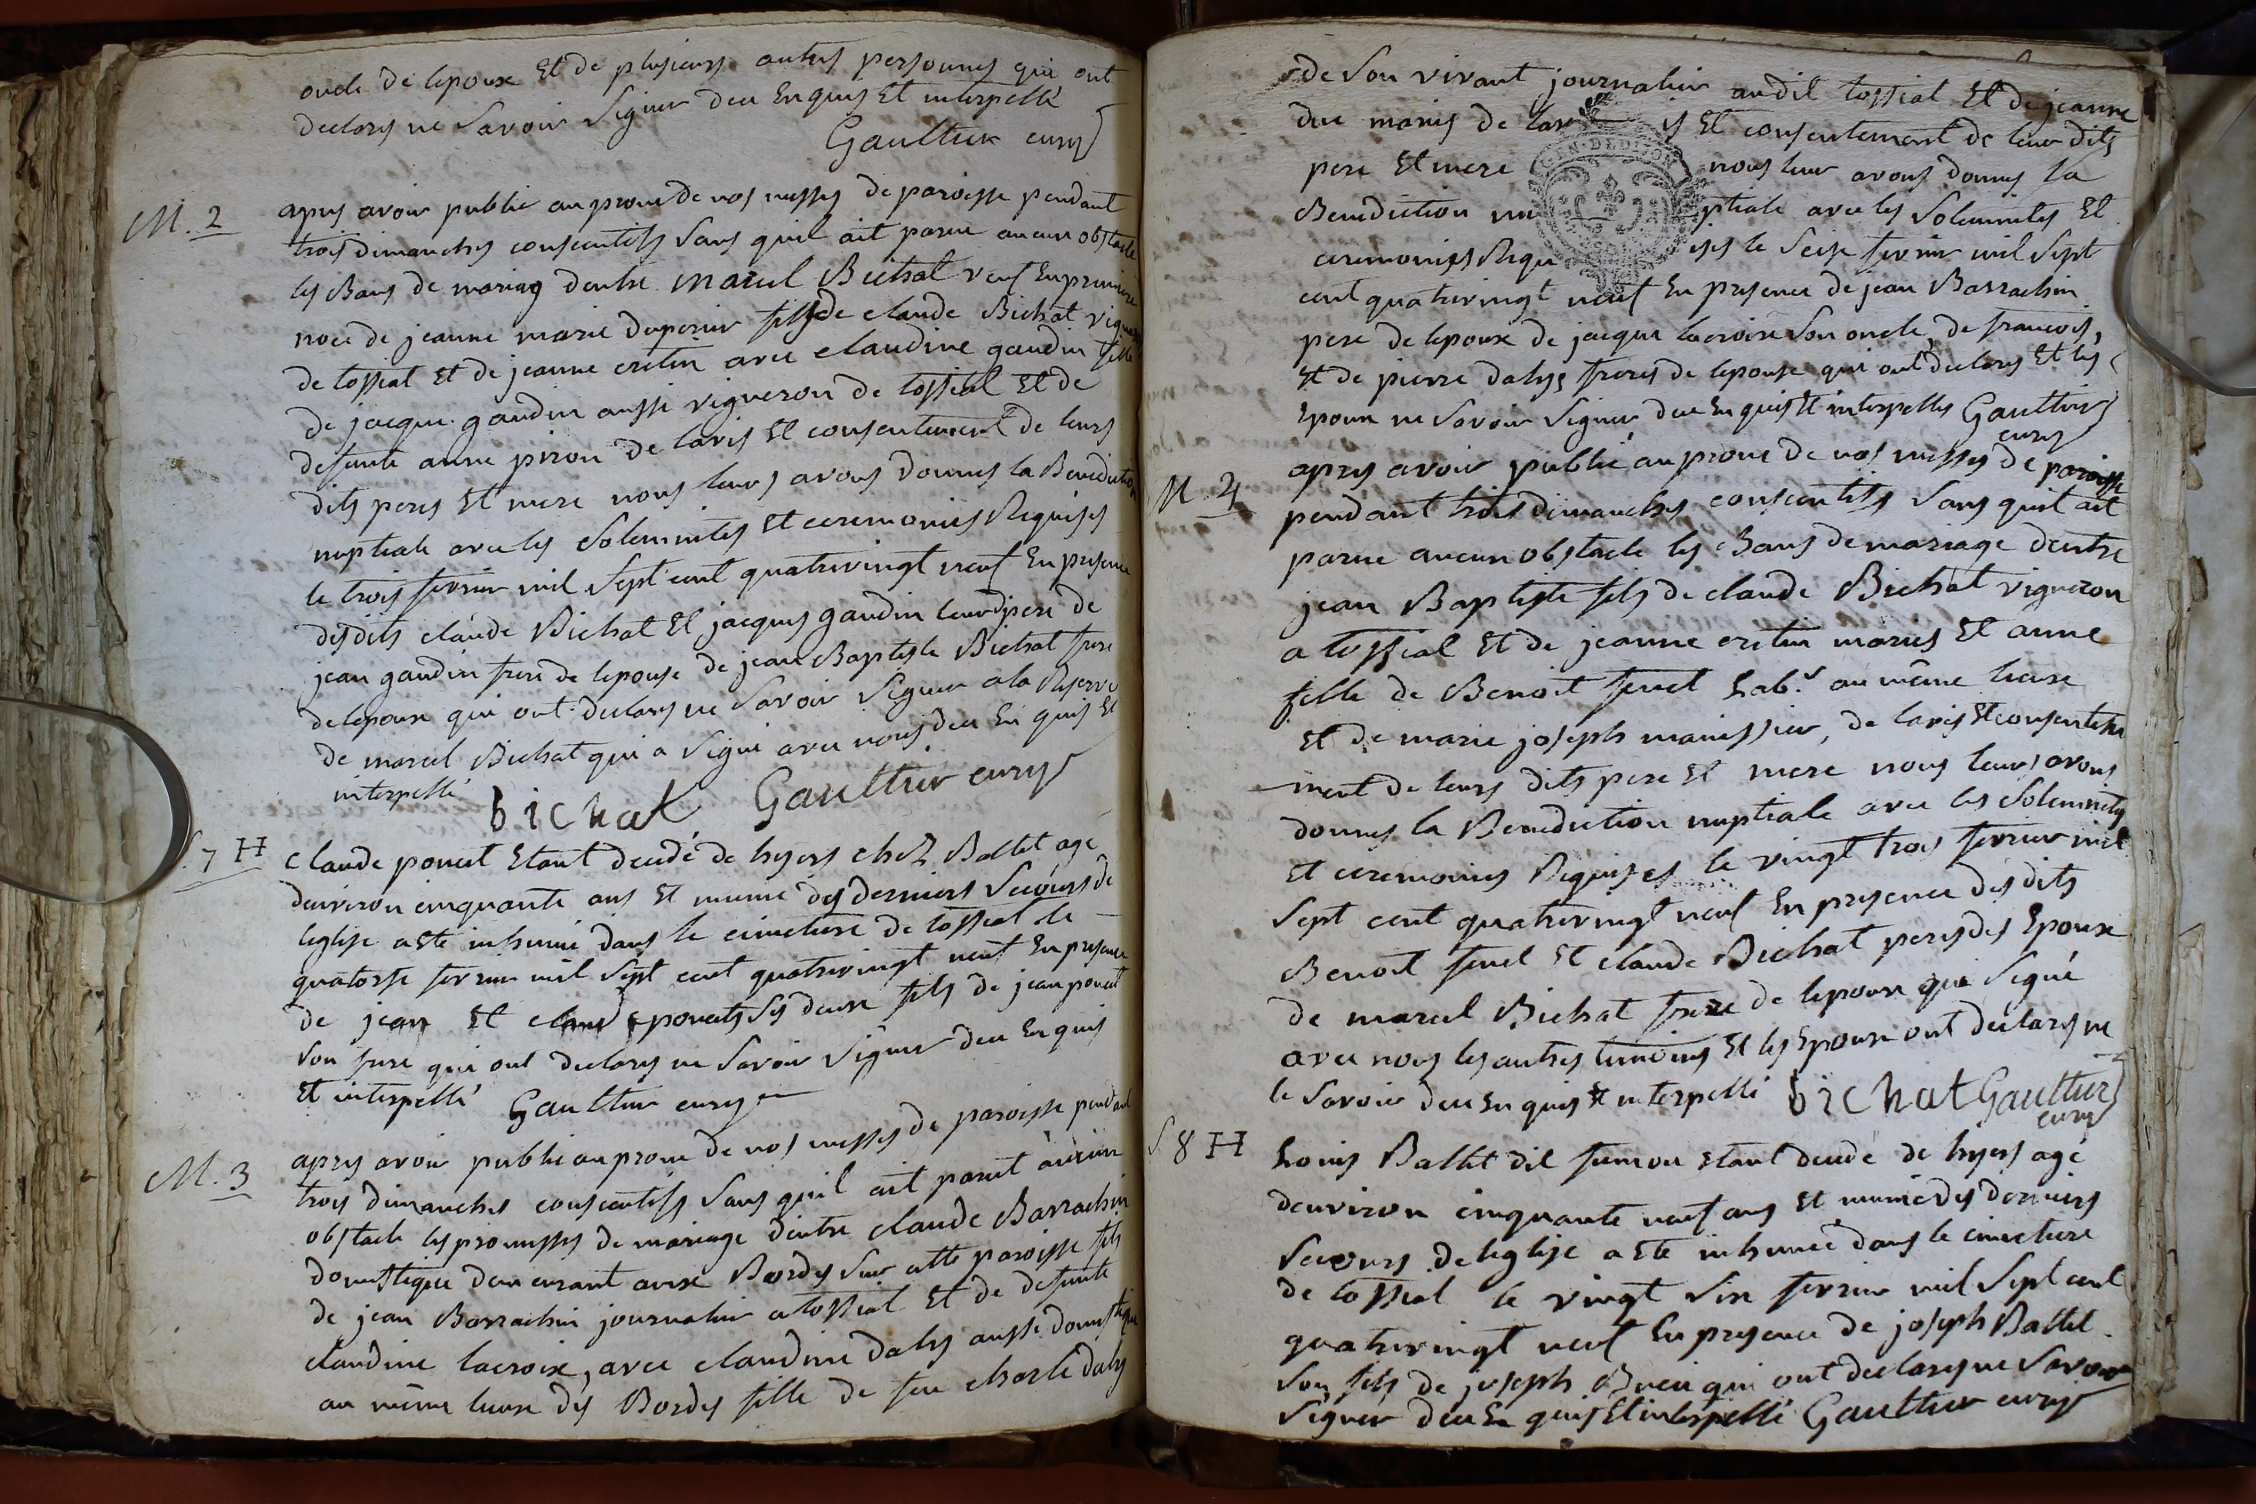 oncle de lepoux Et de plusieurs autres personnes qui ont
declarés ne savoir signer deu Enquis Et interpellé
Gaultier curé
M. 2
apres avoir publié au prone de nos messes de paroisse pendant
trois dimanches consecutifs sans quil ait parue aucun obstacle
les Bans de mariag dentre marcel Bichat veuf En premiere
noce de jeanne marie duperier fils de claude Bichat vigneron
de tossiat Et de jeanne cretin avec claudine gaudin fille
de jacque gaudin aussi vigneron de tossiat Et de
defunte anne piron de lavis Et consentement de leurs
dits peres Et mere nous leurs avons donnés la Benediction
nuptiale avec les solemnités Et ceremonies Requises
le trois fevrier mil sept cent quatrevingt neuf En presence
desdits claude Bichat Et jacques gaudin leurs pere de
jean gaudin frere de lepouse de jean Baptiste Bichat frere
de lepoux qui ont declarés ne savoir signer a la Reserve
de marcel Bichat qui a signé avec nous deu En quis Et
interpellé
bichat Gaultier curé
S. 7 H
claude poncet Etant decedé de hyers chez Ballet agé
denviron cinquante ans Et munie des derniers secours de
leglise a Eté inhumé dans le cimetiere de tossiat le
quatorse fevrier mil sept cent quatrevingt neuf En presence
de jean Et claude poncets ses deux fils de jean poncet
son frere qui ont declarés ne savoir signer deu Enquis
Et interpellé Gaultier curé
M. 3
apres avoir publié au prone de nos messes de paroisse pendant
trois dimanches consecutifs sans quil ait parut aucun
obstacle les promesses de mariage dentre claude Barrachin
domestique demeurant aux Bordes sur cette paroisse fils
de jean Barrachin journalier a tossiat Et de defunte
claudine lacroix, avec claudine dalys aussi domestique
au même lieux des Bordes fille de feu charle dalys
de son vivant journalier audit tossiat Et de jeanne
duc mariés de lav is Et consentement de leur dits
pere Et mere nous leur avons donnés la
GEN. DE DIJON
Benediction nu ptiale avec les solemnités Et
ceremonies Requ ises le seise fevrier mil sept
cent quatrevingt neuf En presence de jean Barrachin
pere de lepoux de jacque lacroix son oncle, de francois,
Et de pierre dalys freres de lepouse qui ont declarés Et les
Epoux ne savoir signer deu Enquis Et interpellés Gaultier
curé
M. 4
apres avoir publié au prone de nos messes de paroisse
pendant trois dimanches consecutifs sans quil ait
parue aucun obstacle les Bans de mariage dentre
jean Baptiste fils de claude Bichat vigneron
a tossiat Et de jeanne cretin mariés Et anne
fille de Benoit feuel hab.t au même lieux
Et de marie joseph manissier, de lavis Et consente
ment de leurs dits pere Et mere nous leurs avons
donnés la Benediction nuptiale avec les solemnités
Et ceremonies Requises le vingt trois fevrier mil
sept cent quatrevingt neuf En presence des dits
Benoit feuel Et claude Bichat peres des Epoux
de marcel Bichat frere de lepoux qui signé
avec nous les autres temoins Et les Epoux ont declarés ne
le savoir deu Enquis Et interpellé bichat Gaultier
curé
S. 8 H
Louis Ballet dit Etant decedé de hyers agé
denviron cinquante neuf ans Et munie des derniers
secours de leglise a Eté inhumé dans le cimetiere
de tossiat le vingt six fevrier mil sept cent
quatrevingt neuf En presence de joseph Ballet
son fils de joseph qui ont declarés ne savoir
signer deu En quis Et interpellé Gaultier curé